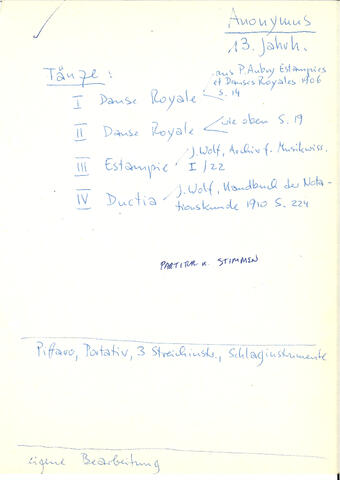 Anonymus
13. Jahrh.
Tänze:
aus P. Aubry Estampies
et Danses Royales 1906
I Danse Royale
S. 14
II Danse Royale
wie oben S. 19
J. Wolf, Archiv f. Musikwiss.
III Estampie
I/22
J. Wolf, Handbuch der Nota-
IV Ductia
tionskunde 1910 S. 224
PARTITUR u. STIMMEN
Piffaro, Portativ, 3 Streichinstr., Schlaginstrumente
eigene Bearbeitung